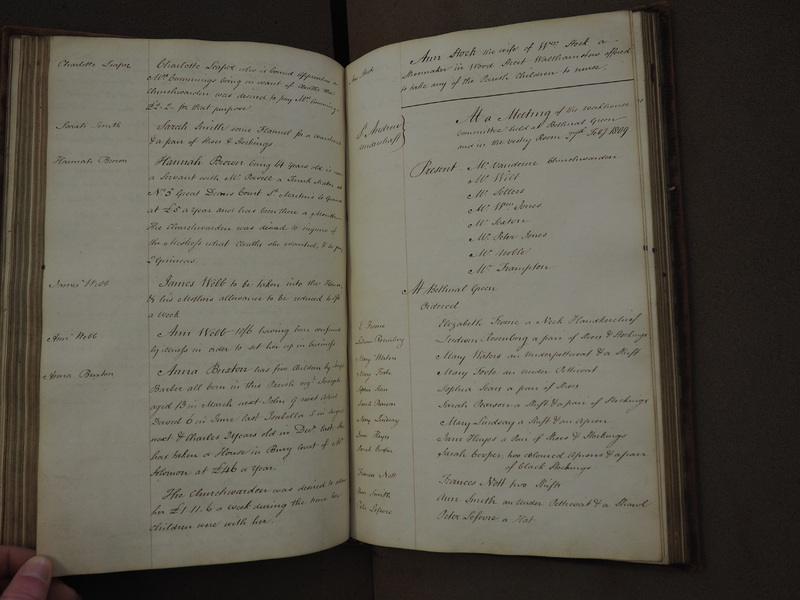 Charlotte Leapor
Charlotte Leapor who is bound Apprentice to
Mrs Cummings being in want of Cloths the
Churchwarden was desired to pay Mrs Cummings
£2.2. for that purpose
Sarah Smith
Sarah Smith some Flannel for a
& a pair of Shoes & Stockings
Hannah Brown
Hannah Brown being 14 Years old is now
a Servant with Mr Powell a Trunk Maker at
No 5 Great Court St Martins le Grand
at £5 a Year and has been there a Month
The Churchwarden was desired to inquire of
the Mistress what Cloaths she wanted, & to pay
2 Guineas
James Webb
James Webb to be taken into the House
& his Mothers allowance to be reduced to
a week
Ann Webb
Ann Webb 10/6 having been confined
by illness in order to set her up in business
Anna Buxton
Anna Buxton has five Children by
Barber all born in this Parish Joseph
aged 13 in March next John 9 next
David 6 in June last Isabella 5 in
next & Charles 2 Years old in Decr last She
has taken a House in Bury Court of Mr
Solomon at £46 a Year
The Churchwarden was desired to allow
her £1.11.6 a week during the time her
Children were with her
Ann Stock
Ann Stock the wife of Wm Stock a
Shoemaker in Wood Street Walthamstow offered
to take any of the Parish Children to nurse
St Andrew
Undershaft
At a Meeting of the Workhouse
Committee held at Bethnal Green
and in the Vestry Room 27th Feby 1809
Present Mr Vandome Churchwarden
Mr Webb
Mr Sellers
Mr Wm Jones
Mr Sexton
Mr Peter Jones
Mr Noble
Mr Frampton
At Bethnal Green
Ordered
E Frome
Elizabeth Frome a Neck Handkerchief
Rosenberg
Rosenberg a pair of Shoes & Stockings
Mary Waters
Mary Waters an Underpetticoat & a Shift
Mary Foote
Mary Foote an under Petticoat
Sophia
Sophia a pair of Shoes
Sarah Pearson
Sarah Pearson a Shift & a pair of Stockings
Mary Lindsay
Mary Lindsay a Shift & an Apron
Hayes
Hayes a Pair of Shoes & Stockings
Sarah Cooper
Sarah Cooper two coloured Aprons & a pair
of black Stockings
Frances Nott
Frances Nott two Shifts
Ann Smith
Ann Smith an under Petticoat & a Shawl
Peter Lefevre
Peter Lefevre a Hat